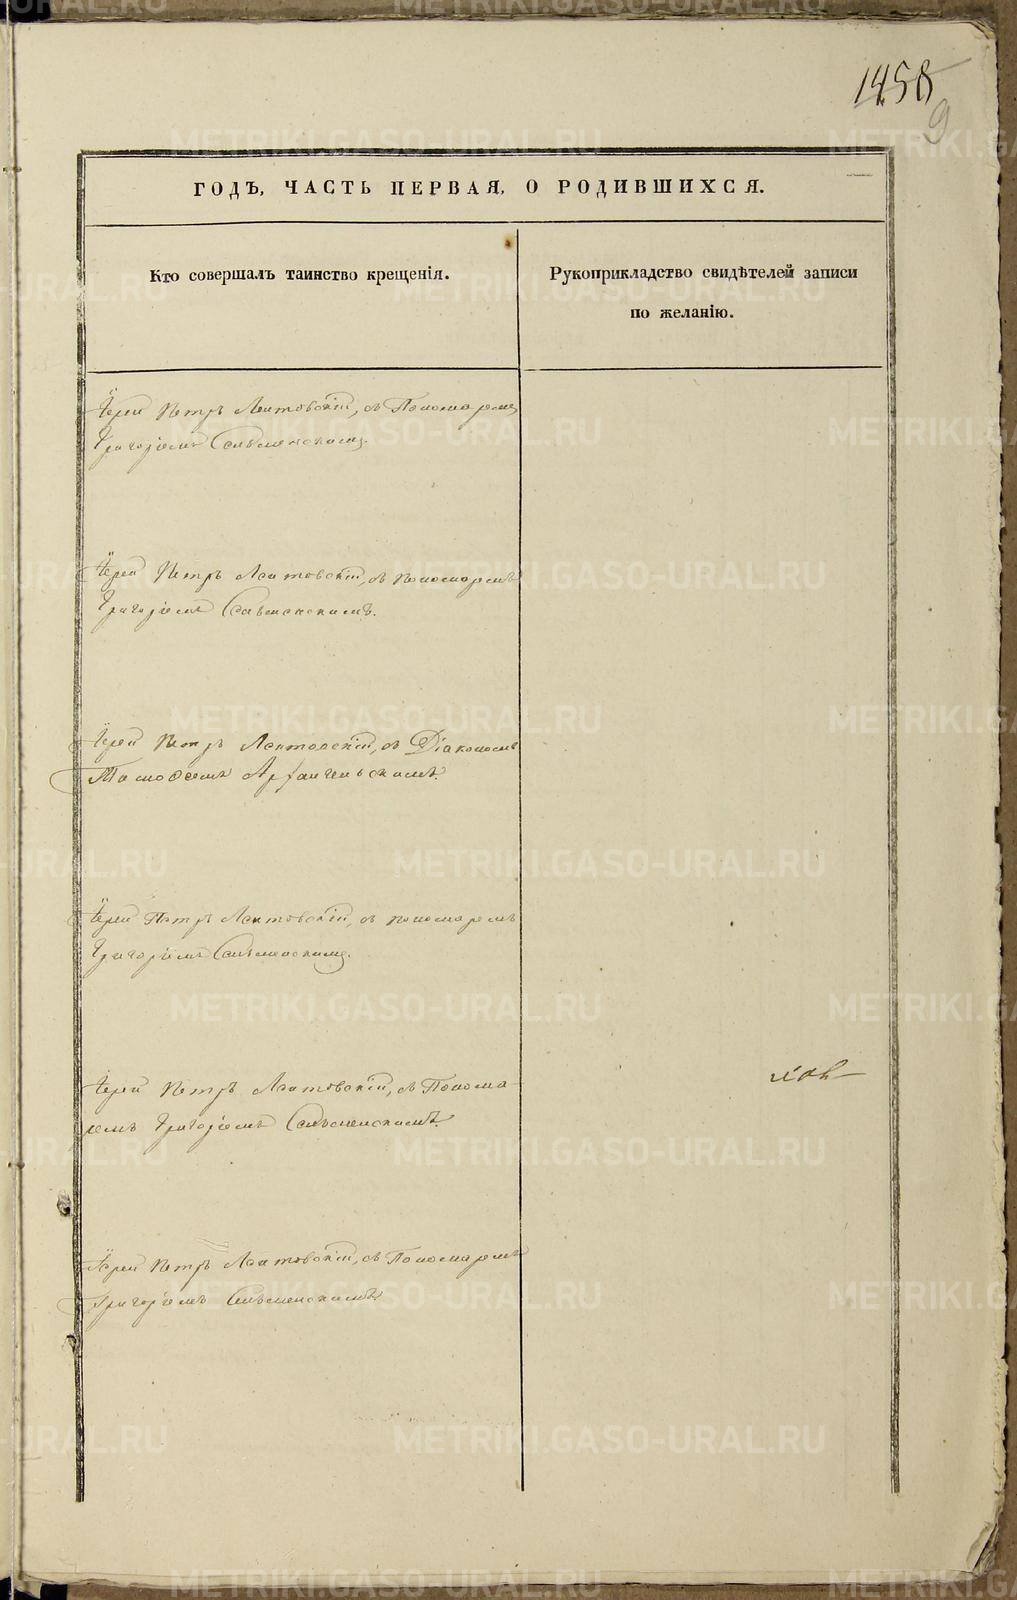 1458
9
ГОДЪ, ЧАСТЬ ПЕРВАЯ, О РОДИВШИХСЯ.
Кто совершалъ таинство крещенія.
Рукоприкладство свидѣтелей записи
по желанію.
Іерей Петръ Лептовскій, съ Пономаремъ
Григоріемъ
Іерей Петръ Лептовскій, съ пономаремъ
Григоріемъ
Іерей Петръ Лептовскій, съ Діакономъ
Тимоѳеемъ Архангельскимъ.
Іерей Петръ Лептовскій, съ пономаремъ
Григоріемъ
Іерей Петръ Лептовскій, съ Понома-
ремъ Григоріемъ
Іерей Петръ Лептовскій, съ Пономаремъ
Григоріемъ
METRIKI.GASO-URAL.RU